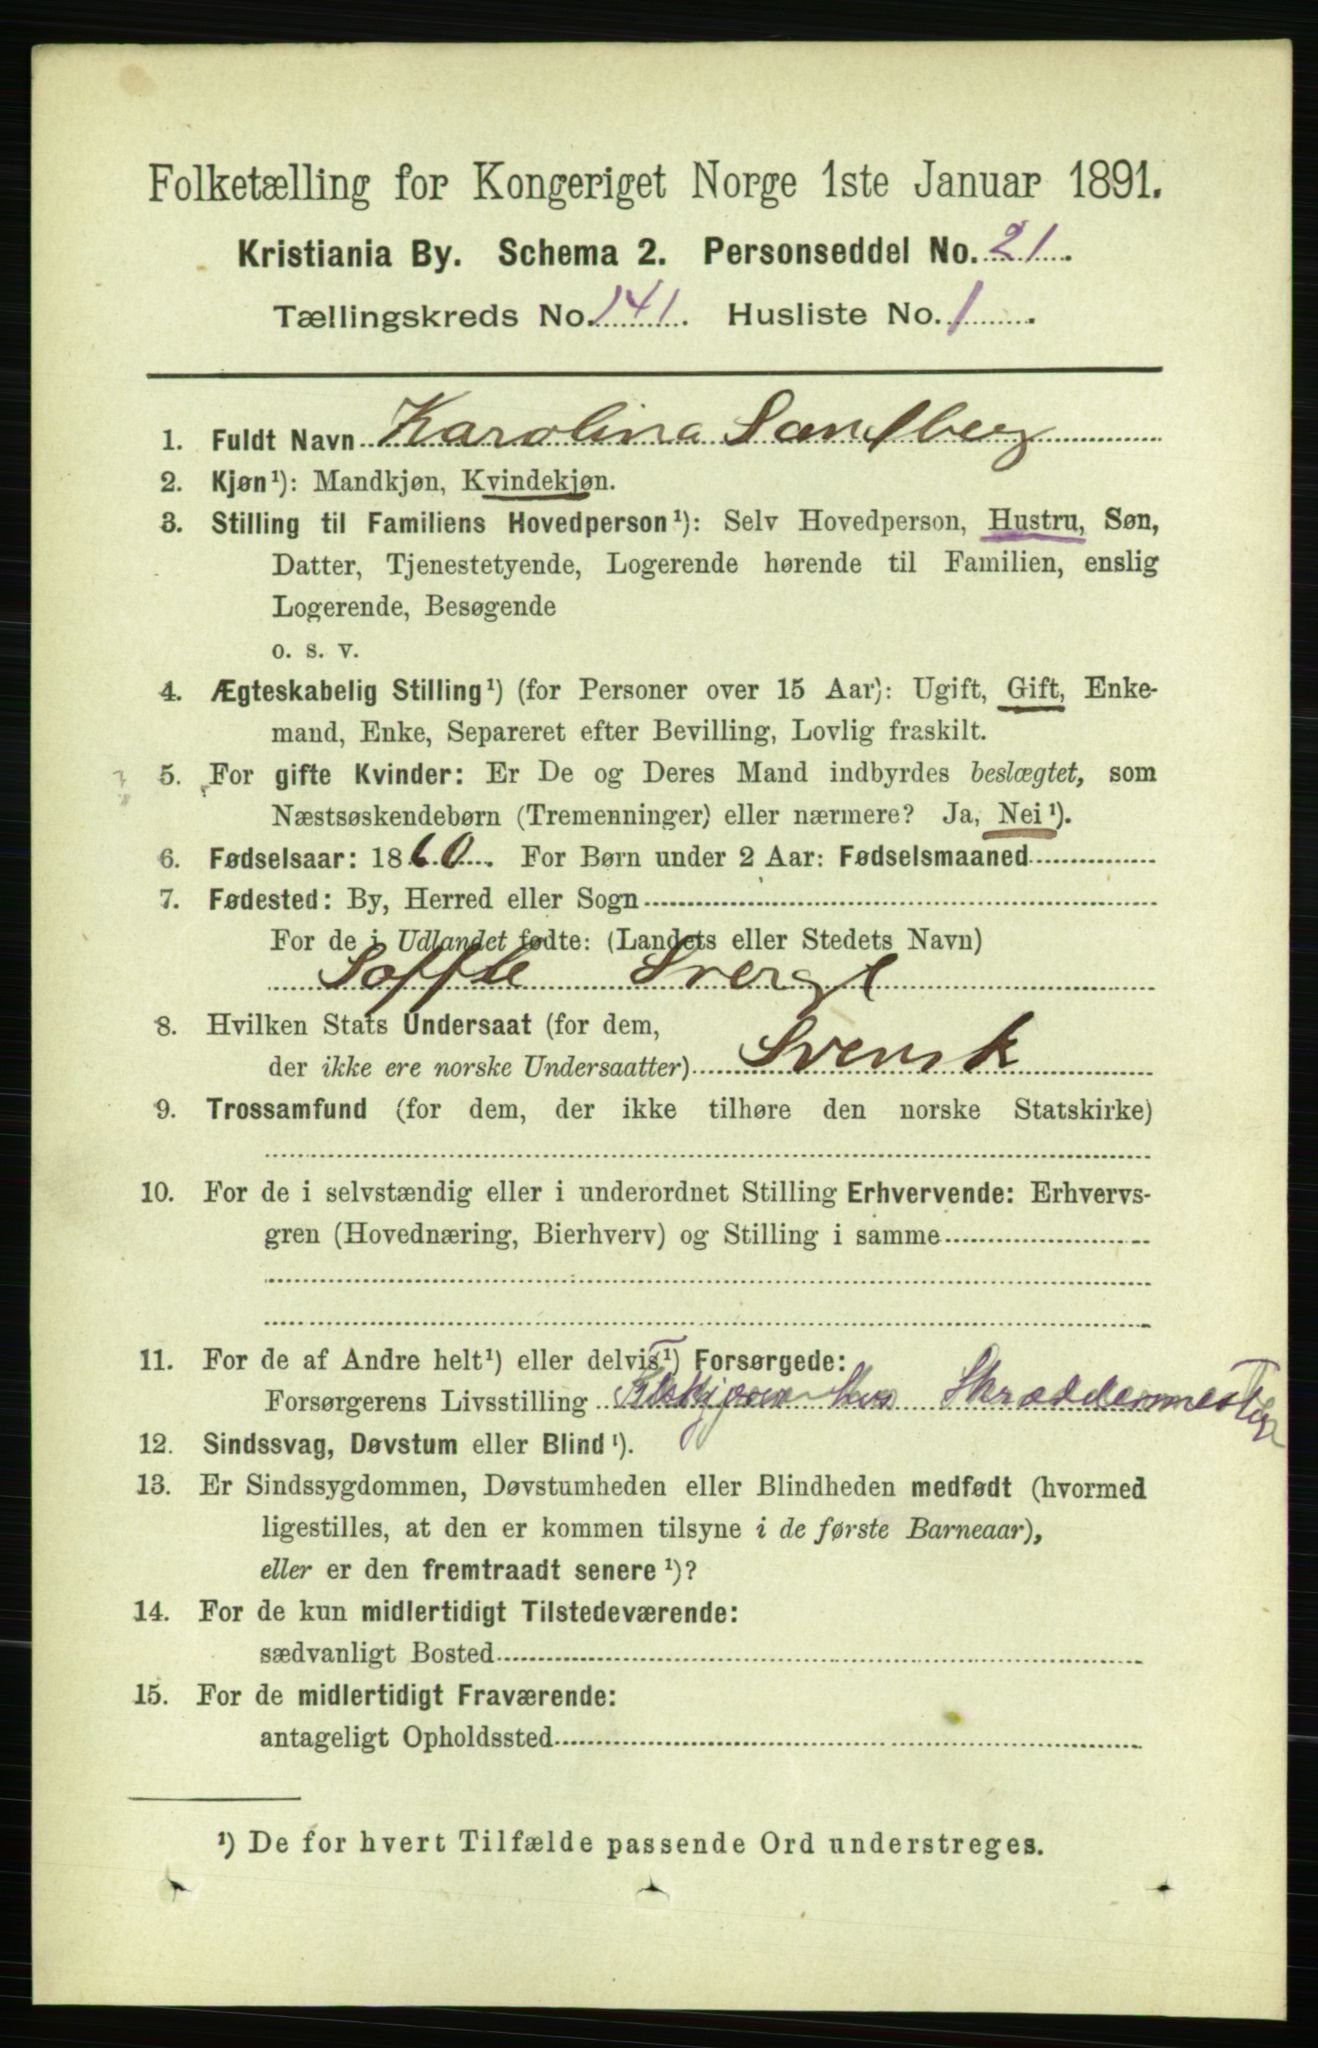 Folketælling for Kongeriget Norge 1ste Januar 1891.
Kristiania By. Schema 2. Personseddel No. 21.
Tællingskreds No. 141. Husliste No. 1.
1. Fuldt Navn Karolina Sandberg
2. Kjøn¹): Mandkjøn, Kvindekjøn.
3. Stilling til Familiens Hovedperson¹): Selv Hovedperson, Hustru, Søn,
Datter, Tjenestetyende, Logerende hørende til Familien, enslig
Logerende, Besøgende
o. s. v.
4. Ægteskabelig Stilling¹) (for Personer over 15 Aar): Ugift, Gift, Enke-
mand, Enke, Separeret efter Bevilling, Lovlig fraskilt.
5. For gifte Kvinder: Er De og Deres Mand indbyrdes beslægtet, som
Næstsøskendebørn (Tremenninger) eller nærmere? Ja, Nei¹).
6. Fødselsaar: 1860. For Børn under 2 Aar: Fødselsmaaned
7. Fødested: By, Herred eller Sogn
For de i Udlandet fødte: (Landets eller Stedets Navn)
Soffle Sverge
8. Hvilken Stats Undersaat (for dem,
der ikke ere norske Undersaatter) Svensk
9. Trossamfund (for dem, der ikke tilhøre den norske Statskirke)
10. For de i selvstændig eller i underordnet Stilling Erhvervende: Erhvervs-
gren (Hovednæring, Bierhverv) og Stilling i samme
11. For de af Andre helt¹) eller delvis¹) Forsørgede:
Forsørgerens Livsstilling Skræddermester
12. Sindssvag, Døvstum eller Blind¹).
13. Er Sindssygdommen, Døvstumheden eller Blindheden medfødt (hvormed
ligestilles, at den er kommen tilsyne i de første Barneaar),
eller er den fremtraadt senere¹)?
14. For de kun midlertidigt Tilstedeværende:
sædvanligt Bosted
15. For de midlertidigt Fraværende:
antageligt Opholdssted
¹) De for hvert Tilfælde passende Ord understreges.